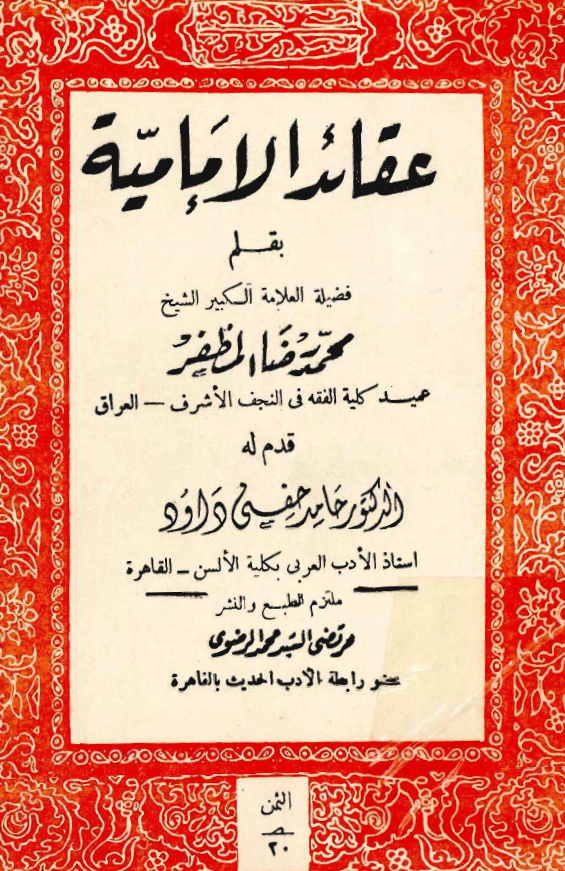 عقائد الإمامية
بقلم
فضيلة العلامة الكبير الشيخ
محمد رضا المظفر
عميد كلية الفقه فى النجف الأشرف — العراق
قدم له
الدكتور حامد حفنى داود
استاذ الأدب العربى بكلية الألسن – القاهرة
ملتزم الطبع والنشر
مرتضى السيد محمد الرضوى
عضو رابطة الأدب الحديث بالقاهرة
الثمن
٢٠